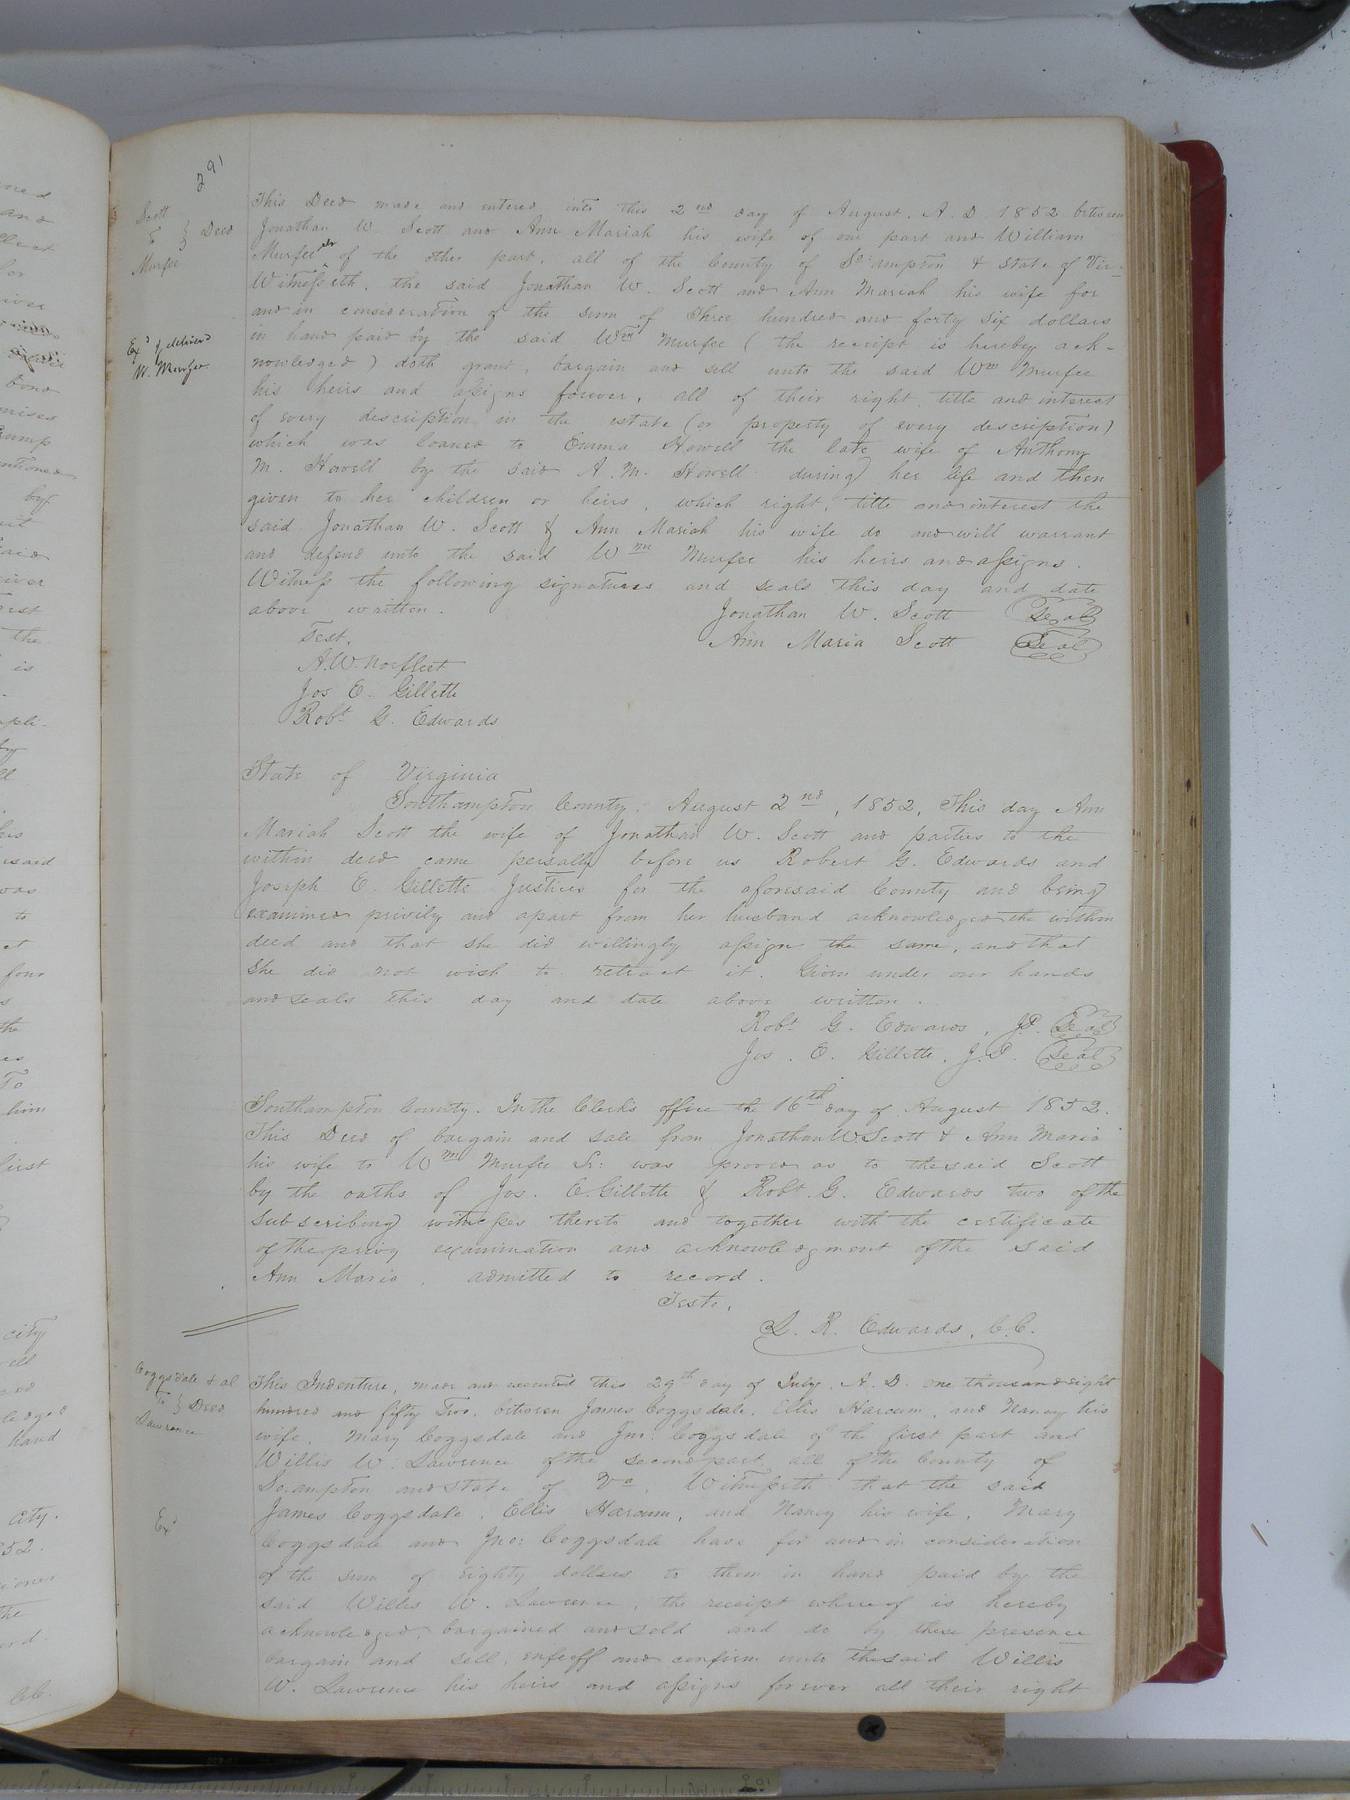 291
Scott
To } Deed
Murfee
Exd & delivered
W. Murfee
This Deed made and entered into this 2nd day of August. A. D 1852 between
Jonathan W. Scott and Ann Mariah his wife of one part and William
Murfee sr of the other part. all of the County of So:ampton & State of Vir-
Witnesseth, the said Jonathan W. Scott and Ann Mariah his wife for
and in consideration of the sum of Three hundred and forty six dollars
in hand paid by the said Wm Murfee (the receipt is hereby ack-
nowledged) doth grant, bargain and sell unto the said Wm Murfee
his heirs and assigns forever, all of their right title and interest
of every description in the estate (or property of every description)
which was loaned to Emma Howell the late wife of Anthony
M. Howell by the said A. M. Howell during her life and then
given to her children or heirs, which right, title and interest the
said Jonathan W. Scott & Ann Mariah his wife do and will warrant
and defend unto the said Wm Murfee his heirs and assigns.
Witness the following signatures and seals this day and date
above written. Jonathan W. Scott Seal
Test. Ann Maria Scott Seal
A. W. Norfleet
Jos E. Gillette
Robt G. Edwards
State of Virginia
Southampton County. August 2nd, 1852, This day Ann
Mariah Scott the wife of Jonathan W. Scott and parties to the
within deed came persally before us Robert G. Edwards and
Joseph E. Gillette Justices for the aforesaid County and being
examined privily and apart from her husband acknowledged the within
deed and that she did willingly assign the same, and that
she did not wish to retract it. Given under our hands
and seals this day and date above written.
Robt G. Edwards, J.P. Seal
Jos. E. Gillette, J.P. Seal
Southampton County. In the Clerk's office the 16th day of August 1852.
This Deed of bargain and sale from Jonathan W Scott & Ann Maria
his wife to Wm Murfee Sr: was proved as to the said Scott
by the oaths of Jos. E. Gillette & Robt G. Edwards two of the
subscribing witnesses thereto and together with the certificate
of the privy examination and acknowledgment of the said
Ann Maria, admitted to record.
Teste,
L. R. Edwards, C.C.
Coggsdale & al
To } Deed
Lawrence
Exd
This Indenture, made and executed this 29th day of July, A. D. one thousand eight
hundred and fifty Two, between James Coggsdale, Ellis Harcum, and Nancy his
wife, Mary Coggsdale and Jno: Coggsdale of the first part and
Willis W. Lawrence of the second part all of the County of
So:ampton and State of Va, Witnesseth that the said
James Coggsdale, Ellis Harcum, and Nancy his wife, Mary
Coggsdale and Jno: Coggsdale have for and in consideration
of the sum of eighty dollars to them in hand paid by the
said Willis W. Lawrence, the receipt whereof is hereby
acknowledged, bargained and sold and do by these presence
bargain and sell, enfeoff and confirm unto the said Willis
W. Lawrence his heirs and assigns forever all their right